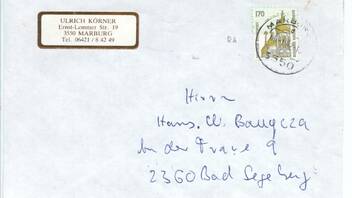 ULRICH KÖRNER
Ernst-Lemmer Str. 19
3550 MARBURG
Tel. 06421 / 8 42 49
170
MARBURG
3550
Herrn
Hans. W.
An der Trave 9
2360 Bad Segeberg